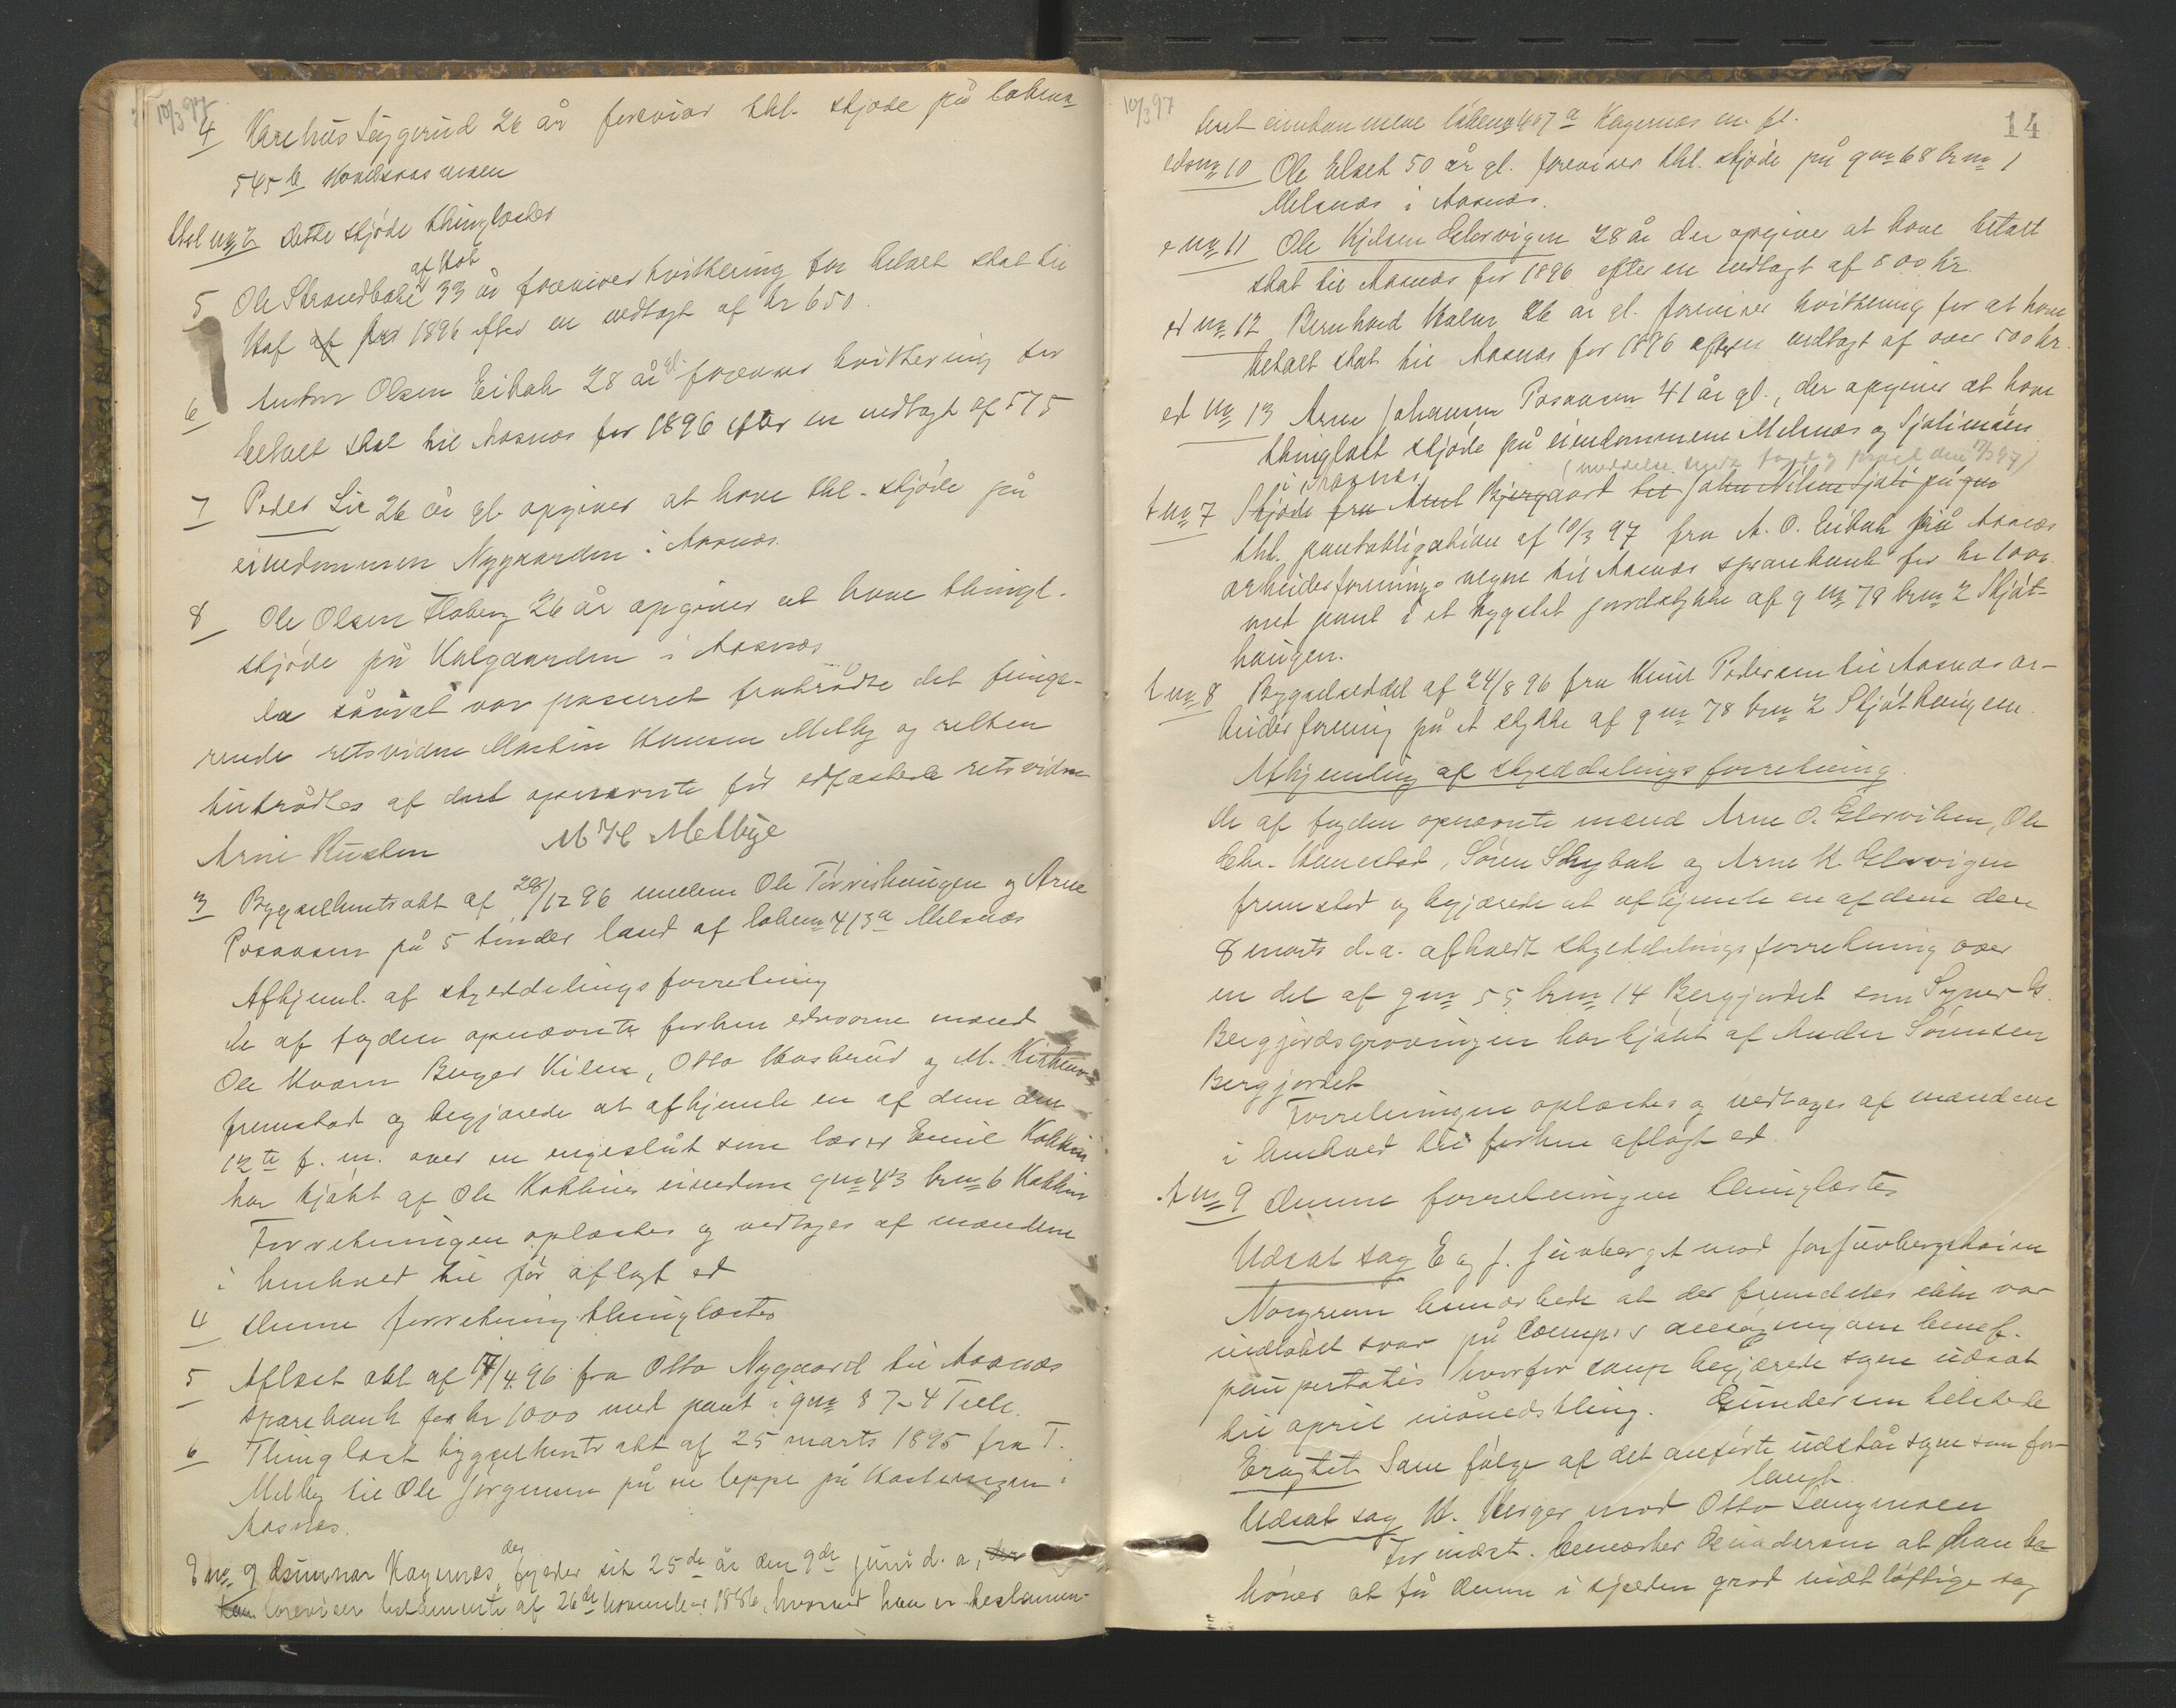 10/3 97
4 Karelius Tyggerud 26 år foreviser thl. skjøde på løbenr
545 b
thl no 2 dette skjøde thinglæstes
5 Ole Strandbakk af Hof 33 år foreviser kvittering for betalt skat til
Hof af for 1896 efter en indtægt af kr 650.
6 Anton Olsen Eibak 28 år gl. foreviser kvittering for
betalt skat til Aasnæs for 1896 efter en indtægt af 575
7 Peder Lie 26 år gl. opgiver at have thl. skjøde på
eiendommen Nygaarden i Aasnæs.
8 Ole Olsen Floberg 26 år opgiver at have thingl.
skjøde på Kalgaarden i Aasnæs
Da såvidt var passeret fratrådte det funge-
rende retsvidne Martin Hansen Melby og retten
tiltrådtes af det opnævnte før edfæstede retsvidne
Arne Rusten M H Melbye
3 Bygselkontrakt af 28/12 96 mellem Ole Törrishaugen og Arne
Posaasen på 5 tønder land af løbenr 413 a Melsnæs
Afhjeml. af skylddelingsforretning
De af fogden opnævnte forhen edsvorne mænd
Ole Kvarn Berger Kilen, Otto Kosterud og M. Kirkenær
fremstod og begjærede at afhjemle en af dem den
12te f. m. over en engeslåt som lærer Emil Kokkin
har kjøbt af Ole Kokkins eiendom gno 43 bno 6 Kokkin
Forretningen oplæstes og vedtoges af mændene
i henhold til før aflagt ed
4 Denne forretning thinglæstes
5 Aflæst obl af 17/4 96 fra Otto Nygaard til Aasnæs
sparebank for kr 1000 med pant i gno 87-4
6 Thinglæst bygselkontrakt af 25 marts 1895 fra T.
Melby til Ole Jørgensen på en løkke på i
Aasnæs.
E no 9 Gunnar Kagernæs, der fylder sit 25de år den 9de juni d. a, der
han foreviser testamente af 26de november 1886, hvorved han er testamen-
10/3 97
14
teret eiendommene løbenr 407 a Kagernæs m. fl.
edsno 10 Ole Elset 50 år gl. foreviser thl. skjøde på gno 68 bno 1
Melsnæs i Aasnæs.
e no 11 Ole Kjelsen Glorvigen 28 år der opgiver at have betalt
skat til Aasnæs for 1896 efter en indtægt af 800 kr.
ed no 12 Bernhard Holm 26 år gl. foreviser kvittering for at have
betalt skat til Aasnæs for 1896 efter en indtægt af over 500 kr.
ed no 13 Arne Johansen Posaasen 41 år gl., der opgiver at have
thinglæst skjøde på eiendommene Melsnæs og Sjølimoen
i Aasnæs.
t no 7 Skjøde fra Amt Bjergaard til John Nilsen Sjøli på gno
thl. pantobligation af 10/3 97 fra A. O. Eibak på Aasnæs
arbeiderforenings vegne til Aasnæs sparebank for kr 1000
med pant i et bygslet jordstykke af gno 78 bno 2 Skjøt-
haugen.
t no 8 Bygselseddel af 24/8 96 fra Knut Pedersen til Aasnæs ar-
beiderforening på et stykke af gno 78 bno 2 Skjøthaugen.
Afhjemling af skylddelingsforretning.
De af fogden opnævnte mænd Arne O. Glorviken, Ole
Chr. Hanestad, Søren Skybak og Arne K. Glorvigen
fremstod og begjærede at afhjemle en af dem den
8 marts d. a. afholdt skylddelingsforretning over
en del af gno 55 bno 14 Bergjordet som Syver
Bergjordsgrøvningen har kjøbt af Anders Sørensen
Bergjordet
Forretningen oplæstes og vedtoges af mændene
i henhold til forhen aflagt ed
t no 9 denne forretningen thinglæstes
Udsat sag E og J. Juvberget mod Jon Juvbergskoien
Norgreen bemærkede at der fremdeles ikke var
indløbet svar på comp.s ansøgning om benef.
paupertatis hvorfor comp. begjærede sagen udsat
til april månedsthing. Gundersen tilstede
Eragtet Som følge af det anførte udstår sagen som for-
langt.
Udsat sag K. Berger mod Otto Langmoen
For indst. bemærker Gundersen at han be-
høver at få denne i sjelden grad vidtløftige sag